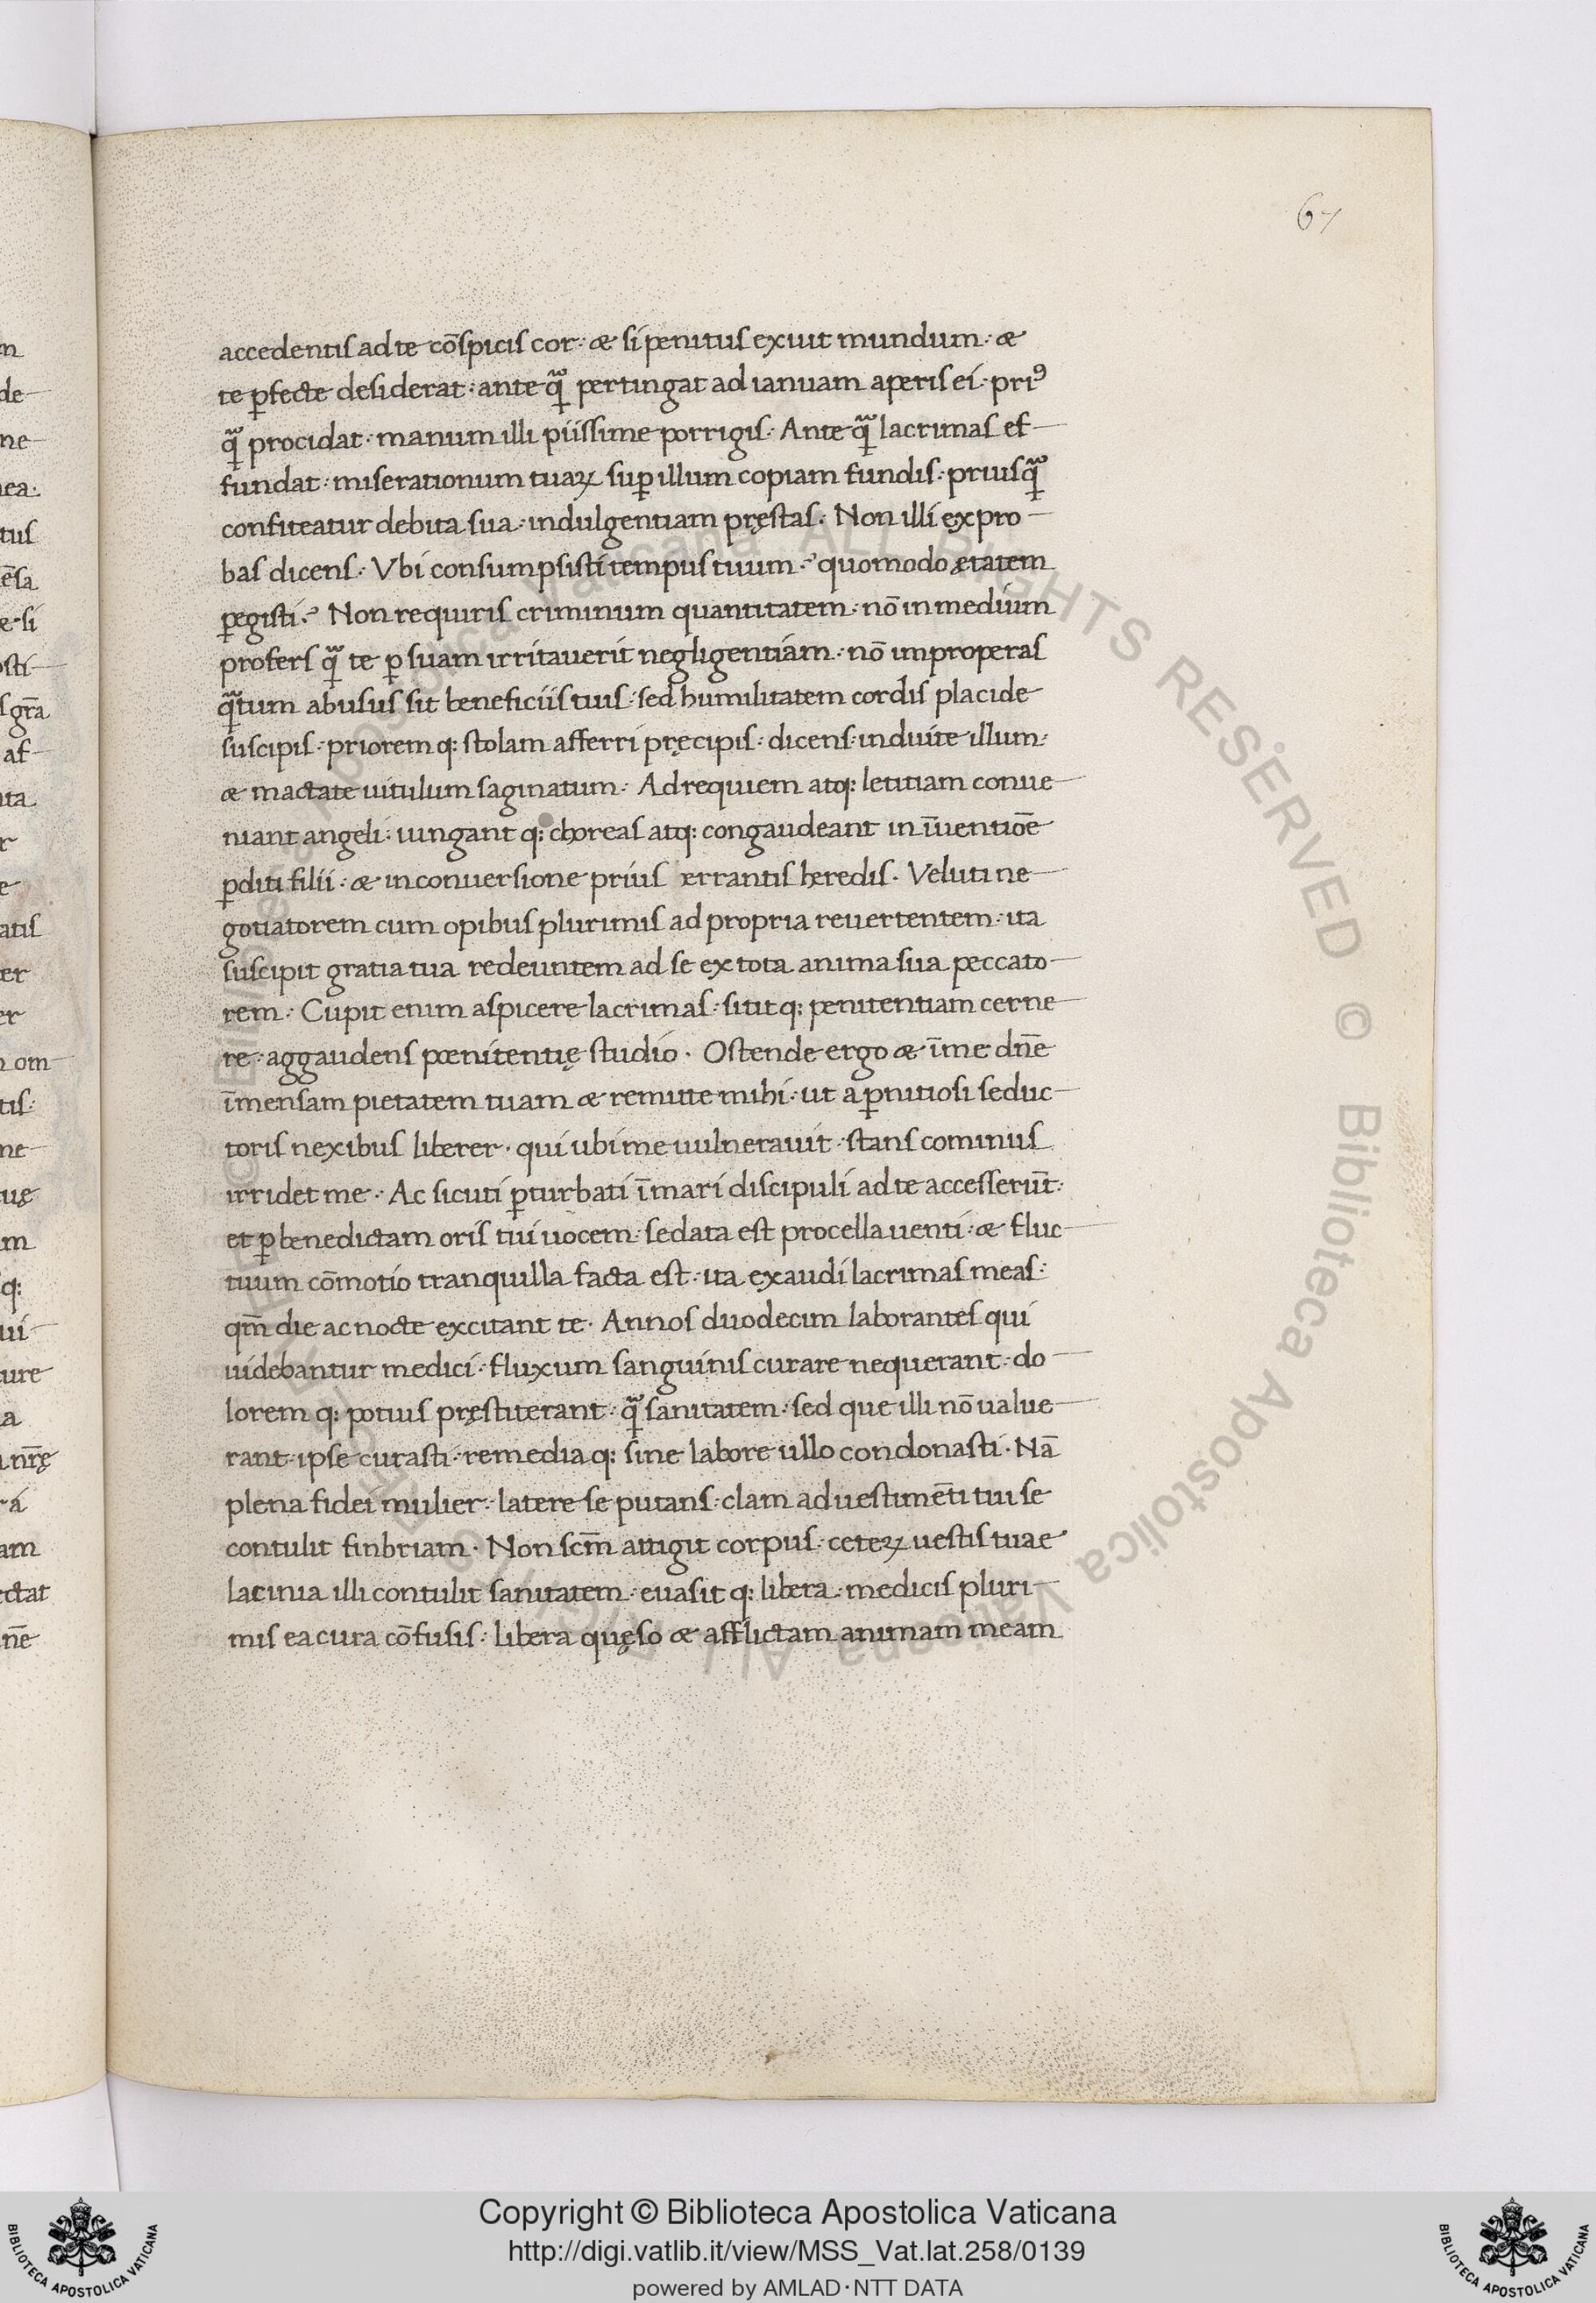 67
accedentis ad te cōspicis cor: & si penitus exuit mundum: &
te ꝑfecte desiderat: ante qᷓꝫ pertingat ad ianuam aperis ei: priꝰ
qᷓꝫ procidat: manum illi piissime porrigis: Ante qᷓꝫ lacrimas ef
fundat: miserationum tuaꝝ suꝑ illum copiam fundis: priusqᷓꝫ
confiteatur debita sua: indulgentiam pręstas: Non illi expro
bas dicens: Vbi consumpsisti tempus tuum? quomodo ętatem
ꝑegisti? Non requiris criminum quantitatem: nō in medium
profers qᷓꝫ te ꝑ suam irritauerit negligentiam: nō improperas
qᷓꝫtum abusus sit beneficiis tuis: sed humilitatem cordis placide
suscipis: priorem q: stolam afferri pręcipis: dicens: induite illum:
& mactate uitulum saginatum: Ad requiem atq: letitiam conue
niant angeli: iungant q: choreas atq: congaudeant in īuentiōe
ꝑditi filii: & in conuersione prius errantis heredis. Veluti ne
gotiatorem cum opibus plurimis ad propria reuertentem: ita
suscipit gratia tua redeuntem ad se ex tota anima sua peccato
rem: Cupit enim aspicere lacrimas: sitit q: penitentiam cerne
re: aggaudens pœnitentię studio. Ostende ergo & ī me dn̄e
īmensam pietatem tuam & remitte mihi: ut a ꝑnitiosi seduc
toris nexibus liberer. qui ubi me uulnerauit: stans cominus
irridet me: Ac sicuti ꝑturbati ī mari discipuli ad te accesserūt:
et ꝑ benedictam oris tui uocem: sedata est procella uenti: & fluc
tuum cōmotio tranquilla facta est: ita exaudi lacrimas meas:
qm̄ die ac nocte excitant te. Annos duodecim laborantes qui
uidebantur medici: fluxum sanguinis curare nequerant: do
lorem q: potius pręstiterant: qᷓꝫ sanitatem: sed que illi nō ualue
rant: ipse curasti: remedia q: sine labore ullo condonasti. Nā
plena fidei mulier: latere se putans: clam ad uestimēti tui se
contulit finbriam. Non scm̄ attigit corpus: ceteꝝ uestis tuae
lacinia illi contulit sanitatem: euasit q: libera: medicis pluri
mis ea cura cōfusis: libera quęso & afflictam animam meam
Copyright © Biblioteca Apostolica Vaticana
http://digi.vatlib.it/view/MSS_Vat.lat.258/0139
powered by AMLAD·NTT DATA